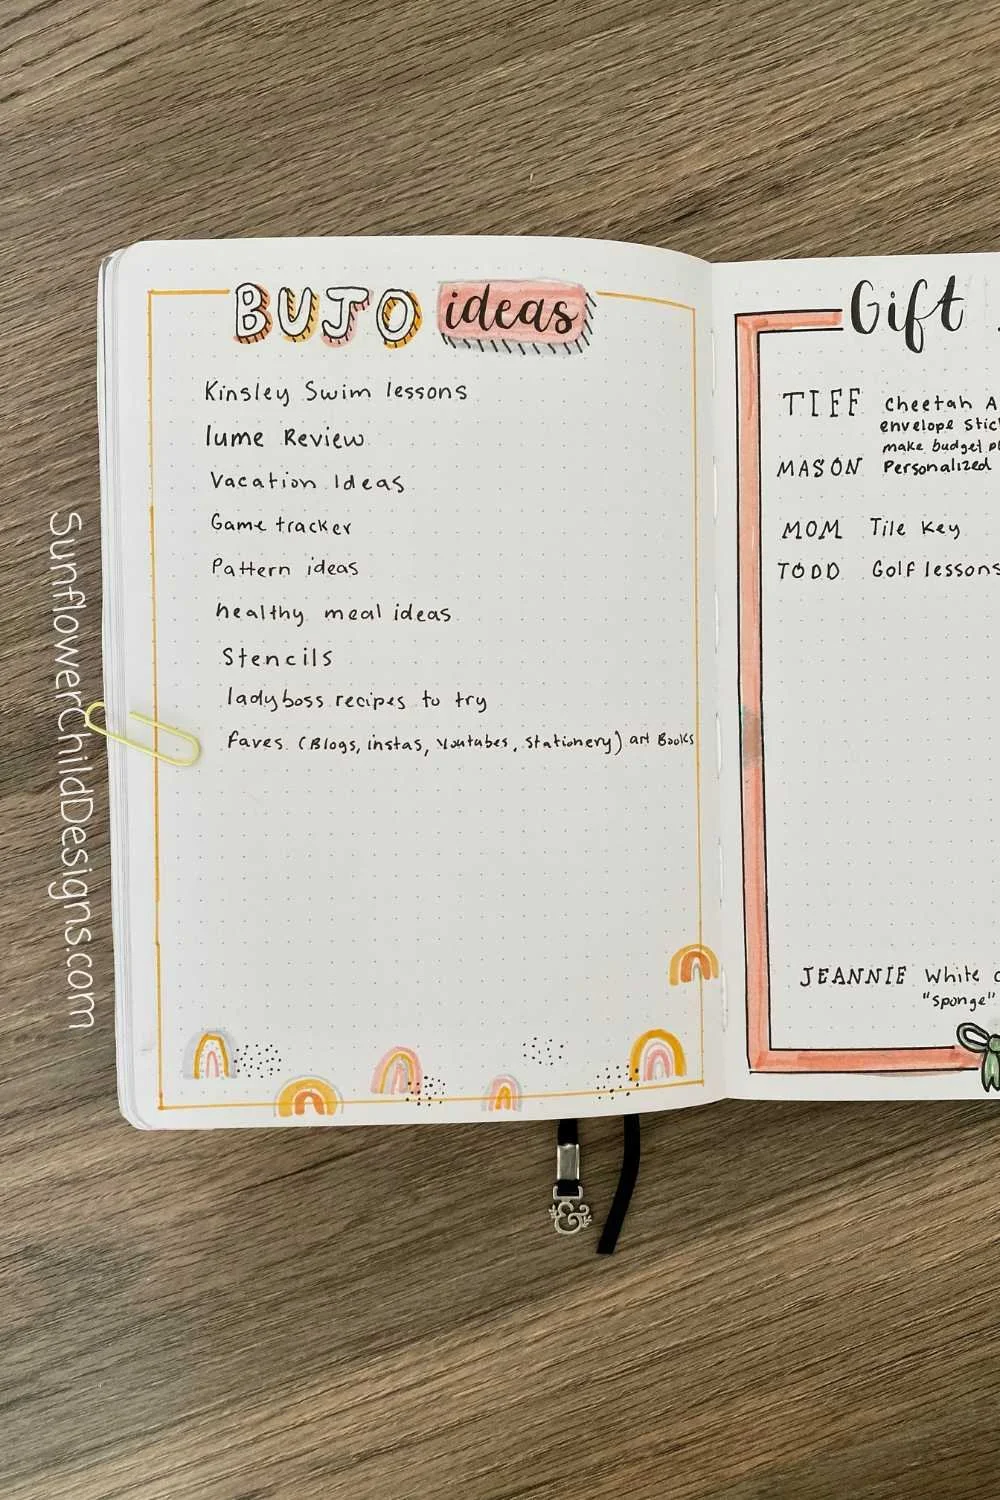 BUJO ideas
Kinsley Swim lessons
lume Review
Vacation Ideas
Game tracker
Pattern ideas
healthy meal ideas
Stencils
ladyboss recipes to try
Faves (Blogs, instas, Youtubes, Stationery) art Books
Gift
TIFF Cheetah A
envelope Stic
make budget pl
MASON Personalized
MOM Tile Key
TODD Golf lessons
JEANNIE White c
"Sponge"
SunflowerChildDesigns.com